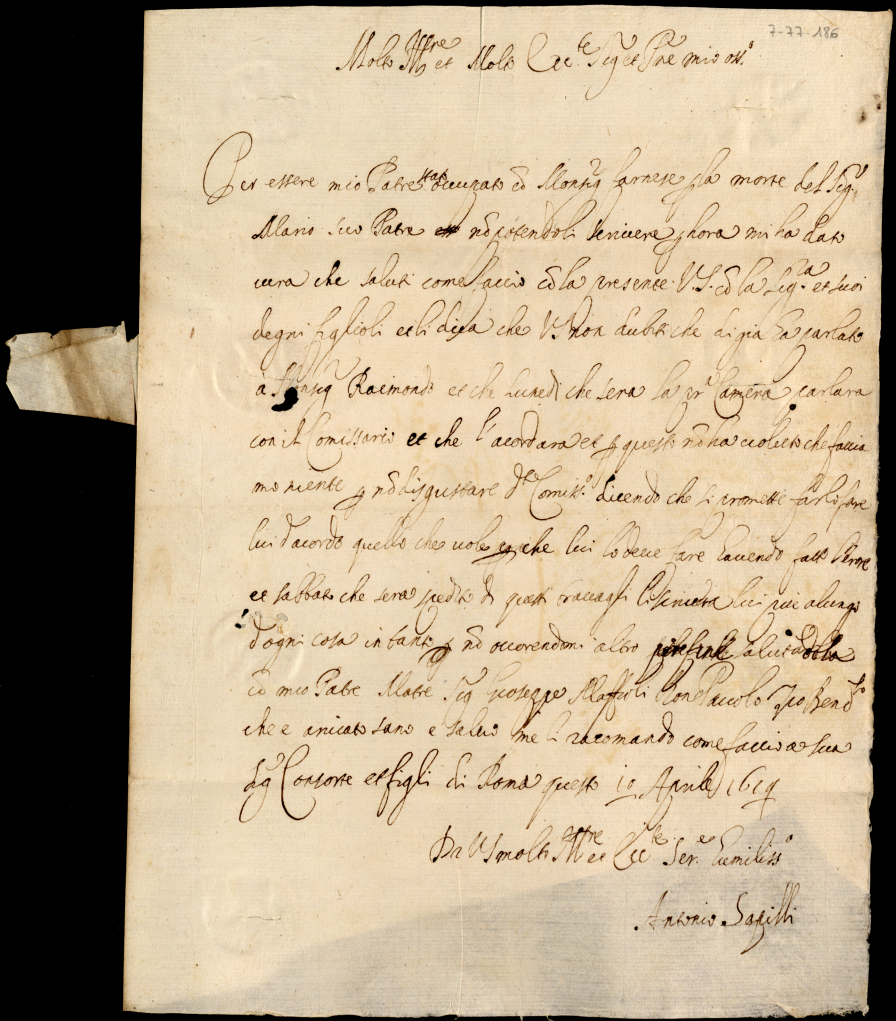 7-77-186
Molto Ill.re et Molto Ecc.te Sig.r et P.ne mio oss.o
Per essere mio Patre stato occupato cō Monsig.r farnese p la morte del Sig.r
Mario suo Patre nō potendoli scrivere p hora mi ha dato
cura che saluti come faccio cō la presente V.S. cō la Sig.ra et suoi
degni figlioli et li dica che VS non dubiti che di gia ha parlato
a Monsig.r Raimondo et che lunedi che sera la pr.a Camera parlara
con il Comissario et che l'acordara et p questo nō ha voluto che faccia
mo niente p nō disgustare d.o Comiss.o dicendo che si promette farli fare
lui d'acordo quello che vole che lui lo deve fare havendo fatto
et sabbato che sera spedito di questi travagli li scrivera lui piu a lungo
d'ogni cosa in tanto p nō occorendomi altro salutandola
cō mio Patre Matre Sig.r Gioseppe Maffioli Paulo
che e arivato sano e salvo me li racomando come faccio a sua
Sig.ra Consorte et figli di Roma questo 10 Aprile 1619
Di VS molto Ill.re et Ecc.te Ser.e humiliss.o
Antonio